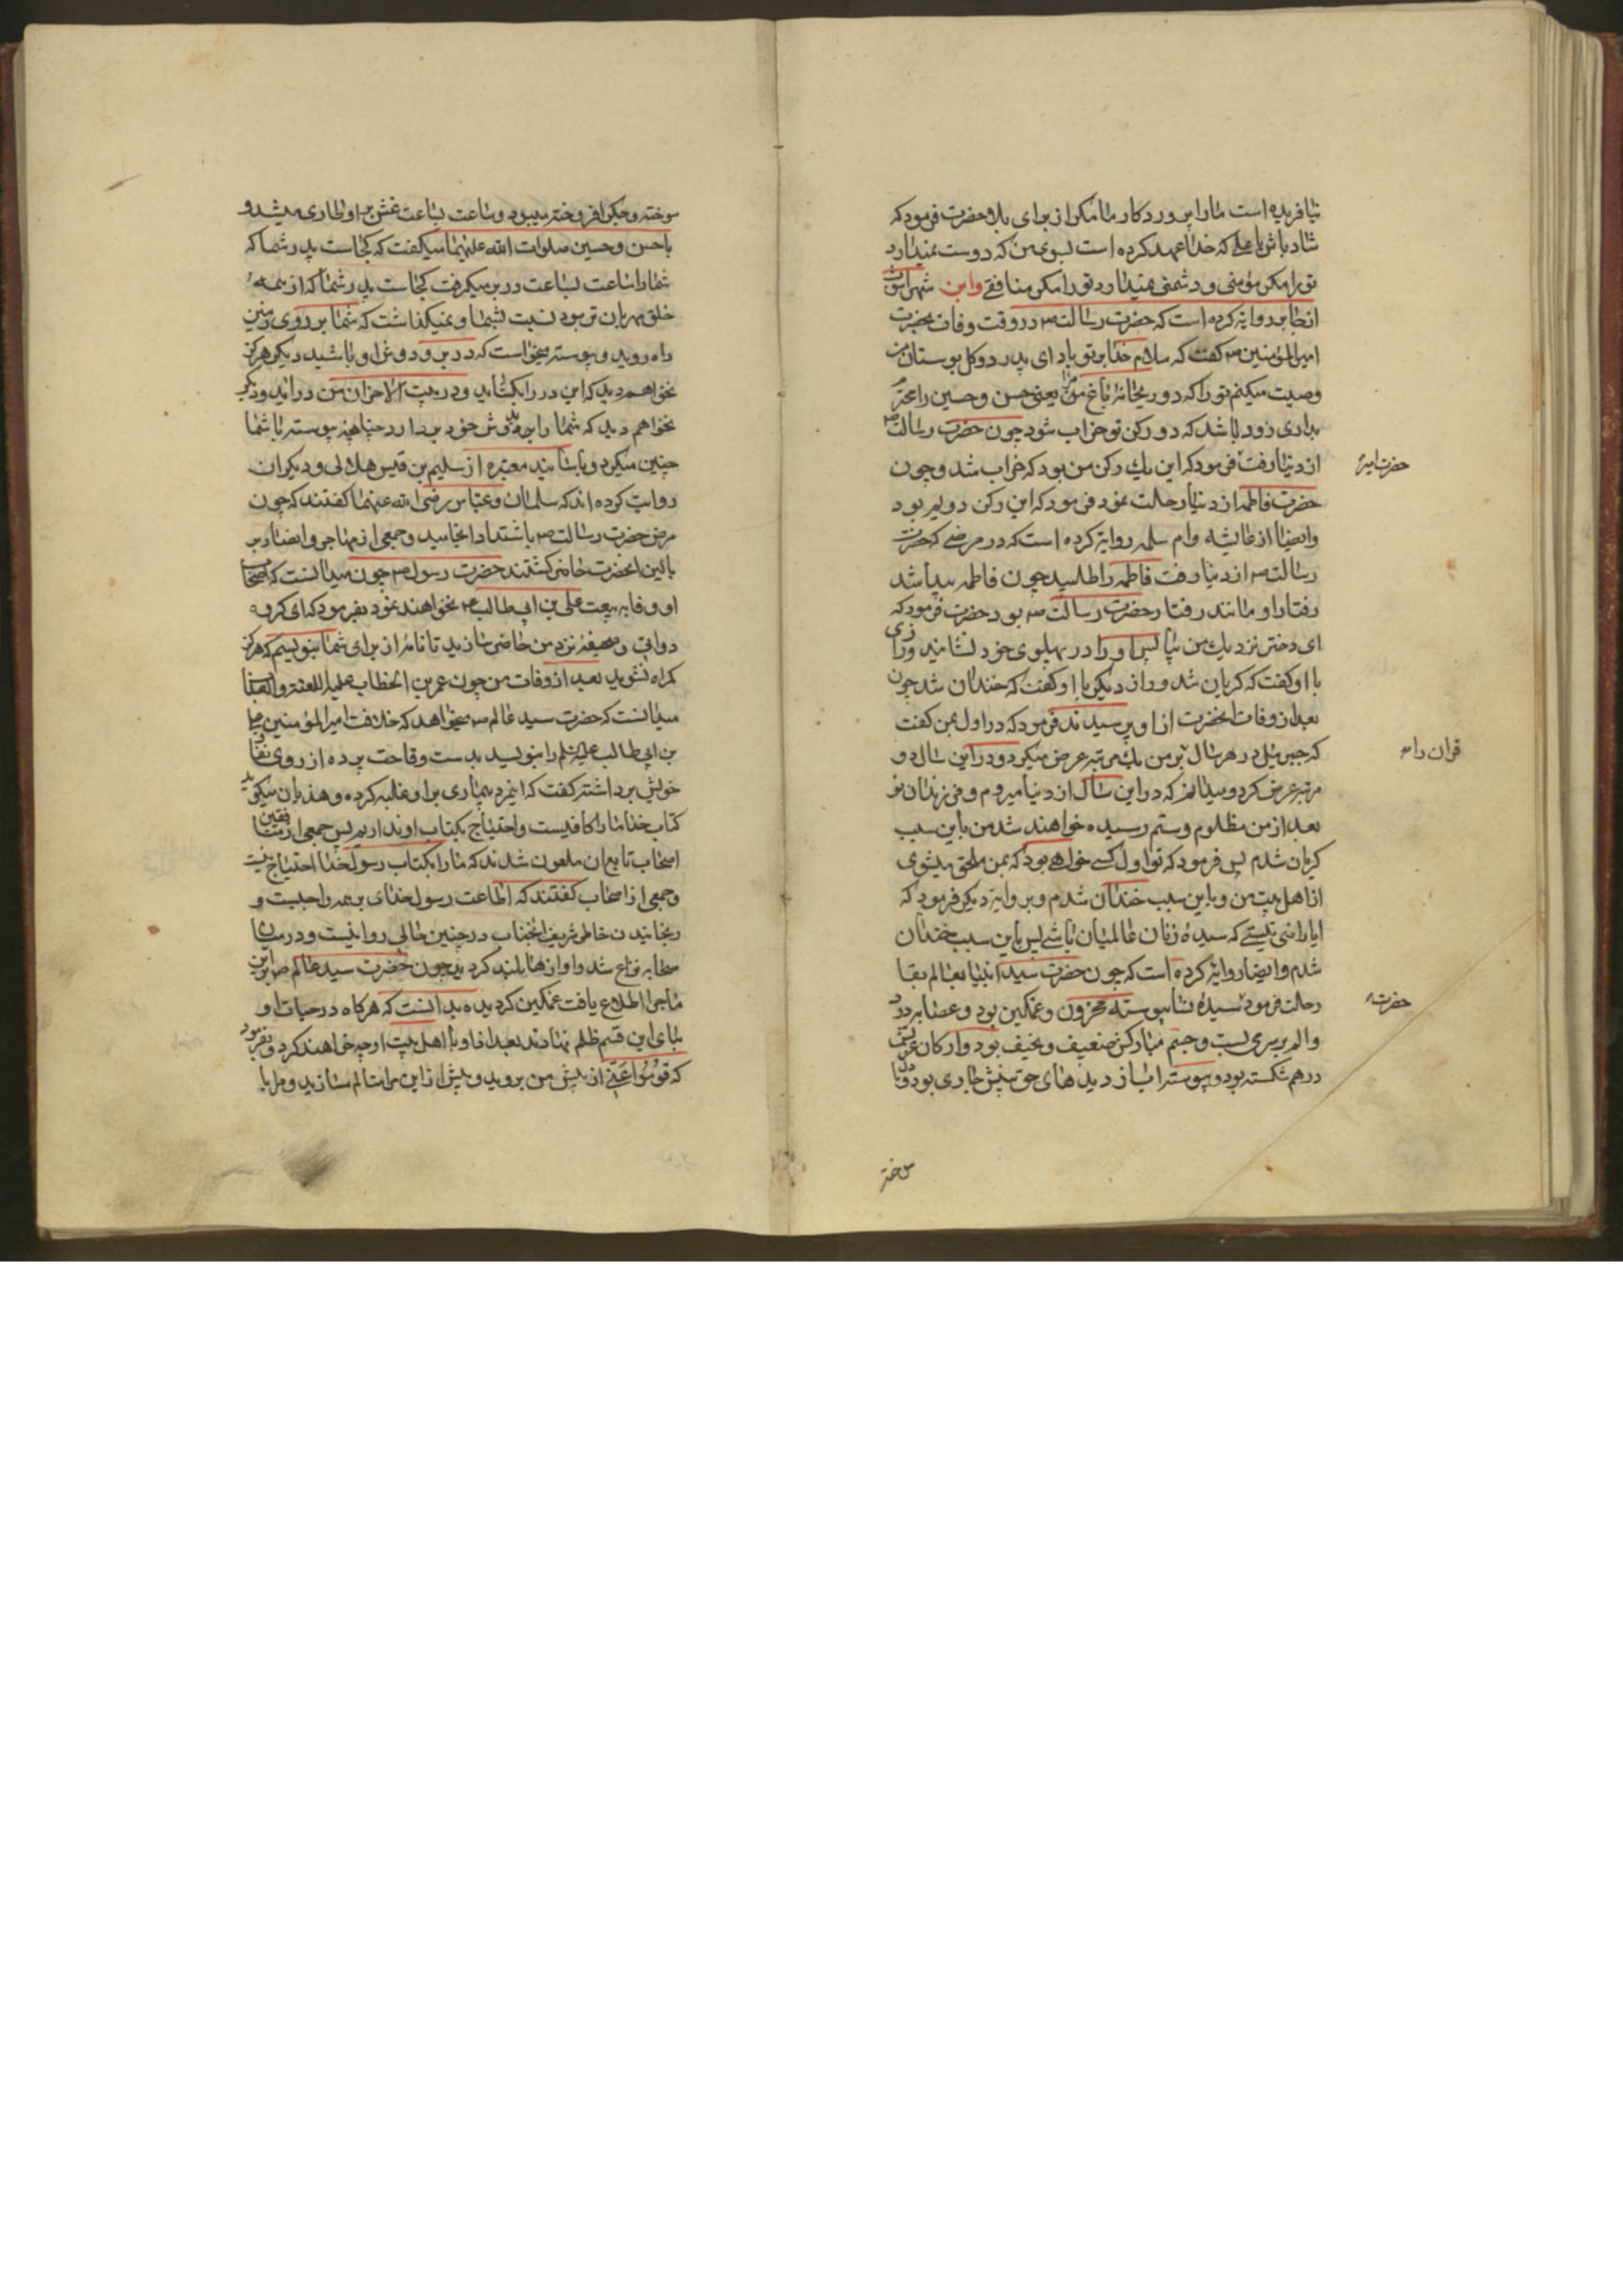 نیافریده است ما را پروردکار ما مکر از برای بلا حضرت فرمود که
شاد باش یا علی که خدا عهد کرده است بسوی من که دوست نمیدارد
تو را مکر مؤمنی و دشمنی نمیدارد تو را مکر منافقی و ابن شهراشوب
انجابر روایة کرده است که حضرت رسالت ص در وقت وفات بحضرت
امیر المؤمنین ع کفت که سلام خدا بر تو باد ای پدر دو کل بوستان من
وصیت میکنم تو را که دو ریحانهٔ باغ مرا یعنی حسن و حسین را محترم
بداری زود باشد که دو رکن تو خراب شود چون حضرت رسالت ص
از دنیا رفت فرمود که این یك رکن من بود که خراب شد و چون
حضرت امیر
حضرت فاطمه از دنیا رحلت نمود فرمود که این رکن دویم بود
وایضا از عایشه و ام سلمه روایة کرده است که در مرضی که حضرت
رسالت ص از دنیا رفت فاطمه را طلبید چون فاطمه پیدا شد
رفتار او مانند رفتار حضرت رسالت ص بود حضرت فرمود که
ای دختر نزدیك من بیا پس او را در پهلوی خود نشانید و رازی
با او کفت که کریان شد و راز دیکر با او کفت که خندان شد چون
بعد از وفات انحضرت از او پرسیدند فرمود که در اول بمن کفت
که جبرئیل در هر سال بر من یك مرتبه عرض میکرد و در این سال دو
قران را
مرتبه عرض کرد و میدانم که در این سال از دنیا میروم و فرزندان تو
بعد از من مظلوم و ستم رسیده خواهند شد من باین سبب
کریان شدم پس فرمود که تو اول کسی خواهی بود که بمن ملحق میشوی
از اهل بیت من و باین سبب خندان شدم و بروایة دیکر فرمود که
ایا راضی نیستی که سیدهٔ زنان عالمیان باشی پس باین سبب خندان
شدم وایضا روایة کرده است که چون حضرت سید انبیا بعالم بقا
رحلت فرمود سیدهٔ نسا پیوسته محزون و غمکین بود و عصابه درد
حضرت
و الم بر سر می بست و جسم مبارکش ضعیف و نحیف بود و ارکان عزتش
درهم شکسته بود و پیوسته اب از دیدهای حق بینش جاری بود و دل
سوخته
سوخته و جکر افروخته میبود و ساعت بساعت غش بر او طاری میشد و
با حسن و حسین صلوات الله علیهما میکفت که کجاست پدر شما که
شما را ساعت بساعت در بر میکرفت کجاست پدر شما که از همهٔ
خلق مهربان تر بود نسبت بشما و نمیکذاشت که شما بر روی زمین
راه روید و پیوسته میخواست که در بر و دوش او باشید دیکر هرکز
نخواهم دید که این در را بکشاید و در بیت الاحزان من درآید و دیکر
نخواهم دید که شما را بر دوش خود بردارد چنانچه پیوسته با شما
چنین میکرد و باسانید معتبره از سلیم بن قیس هلالی و دیکران
روایت کرده اند که سلمان و عباس رضی الله عنهما کفتند که چون
مرض حضرت رسالت ص باشتداد انجامید و جمعی از مهاجر و انصار بر
بالین انحضرت حاضر کشتند حضرت رسول ص چون میدانست که اصحاب
او وفا به بیعت علی بن ابی طالب ع نخواهند نمود بفرمود که ای کروه
دواتی و صحیفهٔ نزد من حاضر سازید تا نامهٔ از برای شما بنویسیم که هرکز
کمراه نشوید بعد از وفات من چون عمر بن الخطاب علیه اللعنة والعذاب
میدانست که حضرت سید عالم ص میخواهد که خلافت امیر المؤمنین علی
بن ابی طالب را بنویسد بدست وقاحت پرده از روی نفاق
خویش برداشته کفت که اینمرد بیماری بر او غلبه کرده و هذیان میکوید
کتاب خدا ما را کافیست و احتیاج بکتاب او نداریم پس جمعی از منافقین
اصحاب تابع ان ملعون شدند که ما را بکتاب رسول خدا احتیاج نیست
و جمعی از اصحاب کفتند که اطاعت رسول خدای بر همه واجبست و
رنجانیدن خاطر شریف انجناب در چنین حالی روا نیست و در میان
صحابه نزاع شد و اوازها بلند کردید چون حضرت سید عالم ص بر این
ماجرا اطلاع یافت غمکین کردیده بدانست که هرکاه در حیات او
بنای این قسم ظلم نهادند بعد از او با اهل بیت او چه خواهند کرد و بفرمود
که قوموا عنی از پیش من بروید و بیش از این مرا متالم مسازید و مرا با